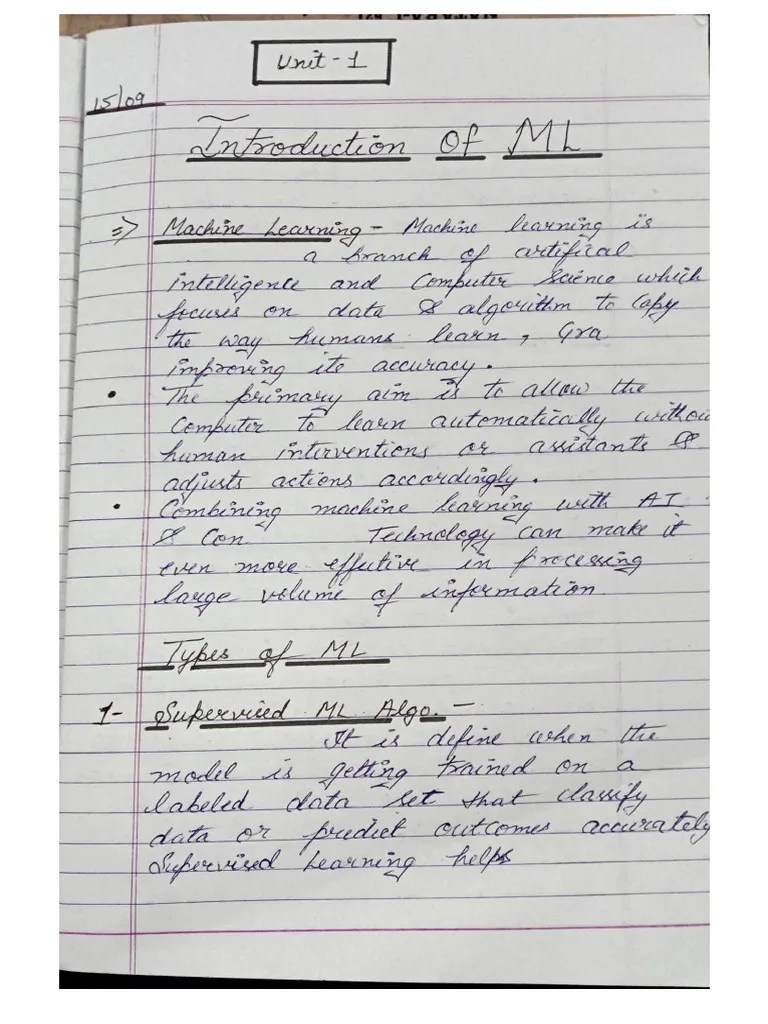 Unit - 1
15/09
Introduction Of ML
=> Machine Learning - Machine learning is
a branch of artifical
intelligence and Computer Science which
focuses on data & algorithm to Copy
the way humans learn, Gra
improving its accuracy.
• The primary aim is to allow the
Computer to learn automatically withou
human interventions or assistants &
adjusts actions accordingly.
• Combining machine learning with AI
& Con Technology can make it
even more effective in processing
large volume of information.
Types of ML
1- Supervised ML Algo. -
It is define when the
model is getting trained on a
labeled data set that classify
data or predict outcomes accurately
Supervised Learning helps